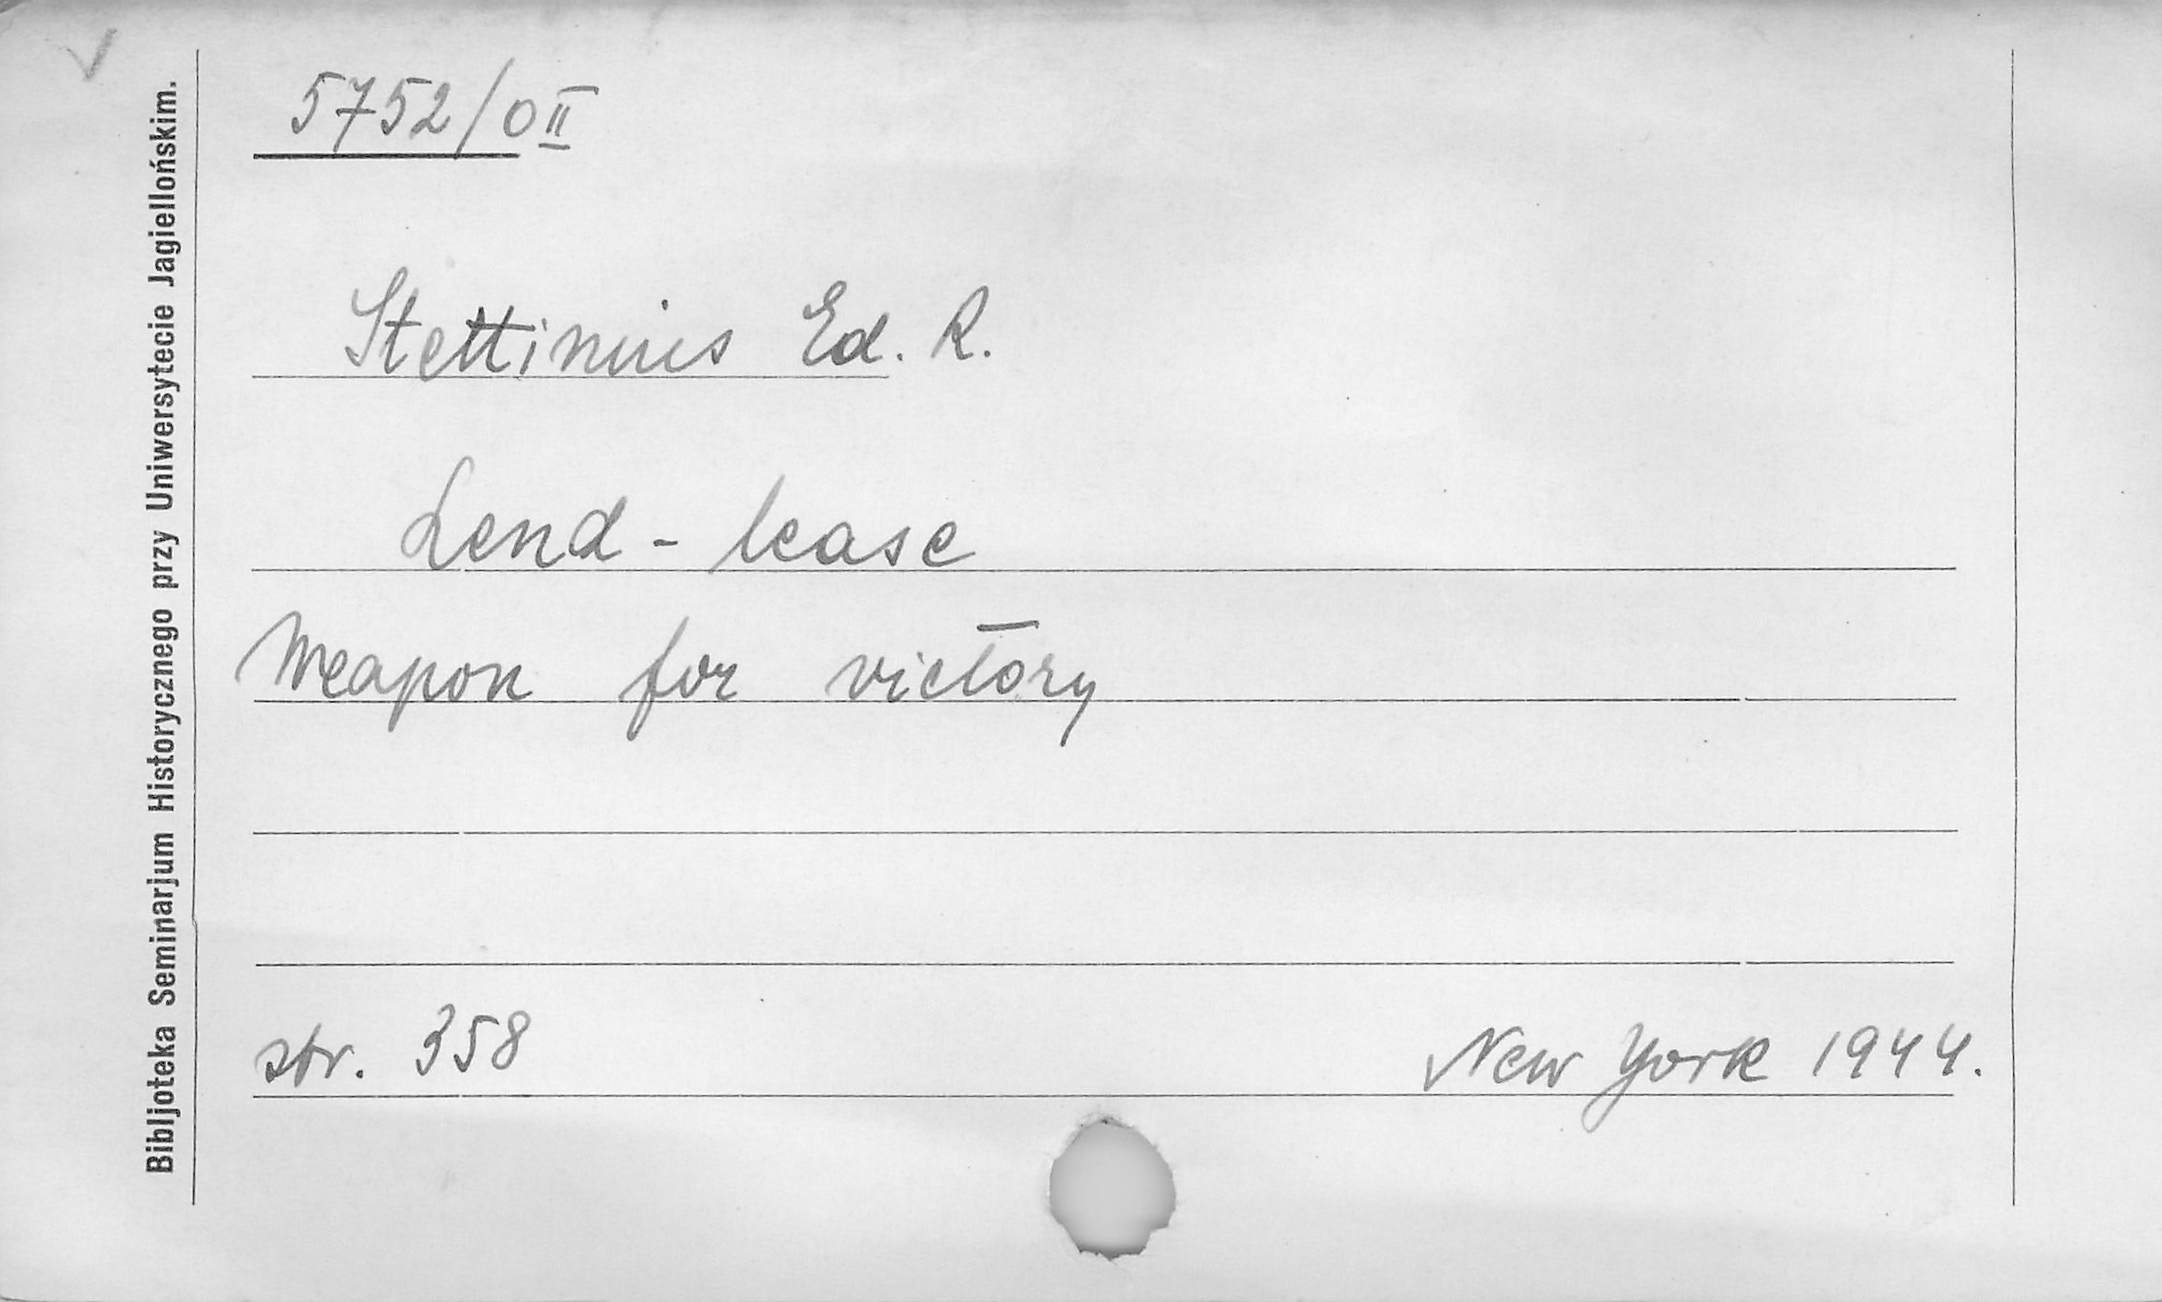 Bibljoteka Seminarjum Historycznego przy Uniwersytecie Jagiellońskim.
5752/0 II
Stettinius Ed. R.
Lend - lease
Weapon for victory
str. 358 New York 1944.